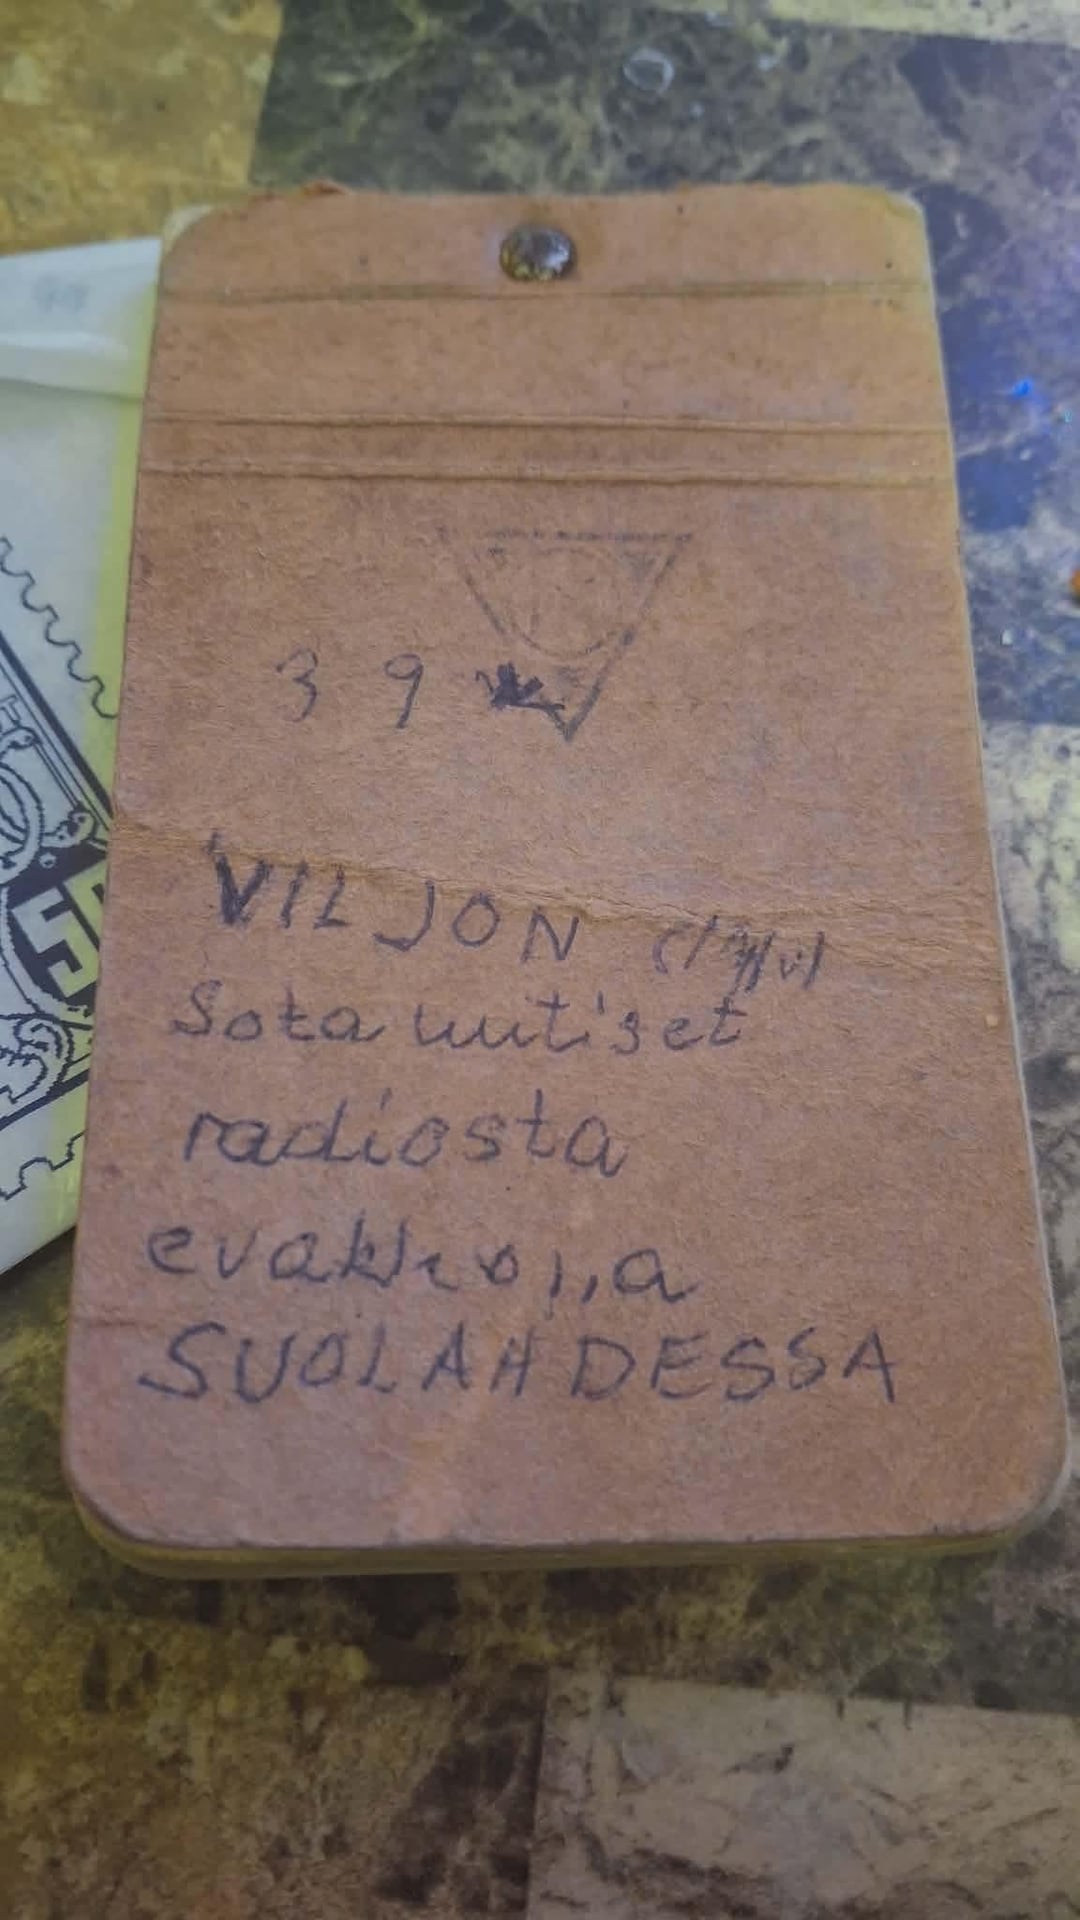 3 9
VILJON
Sota uutiset
radiosta
SUOLAHDESSA